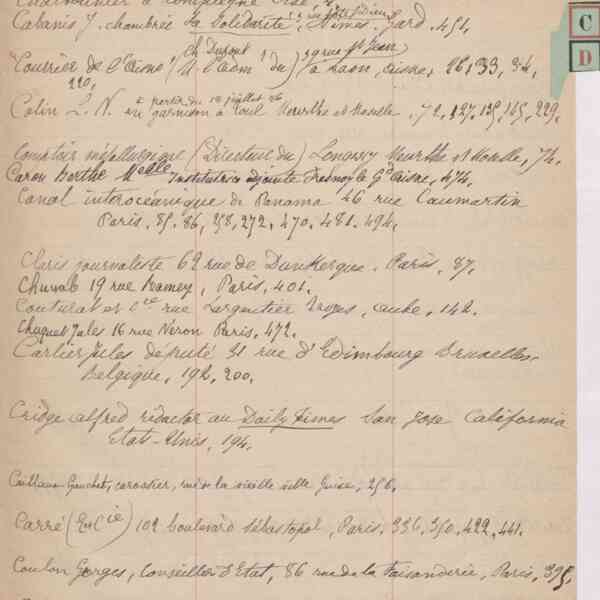 Cabanis J. chambrée La Solidarité, Nîmes. Gard. 451.
ch Dupont rue St Jean
"Courrier de l'Aisne" (à l'adm. du) à Laon, Aisne, 26, 33, 34,
220,
à partir du 10 juillet
Colin L. N. en garnison à Toul Meurthe et Moselle. 72, 127, 135, 165, 229,
Comptoir métallurgique (Directeur du) Longwy Meurthe et Moselle, 74.
Caron Berthe Melle Institutrice adjointe Fresnoy le Gd Aisne, 474.
Canal interocéanique de Panama 46 rue Caumartin
Paris. 85. 86, 258, 272, 470. 481. 494.
Claris journaliste 62 rue de Dunkerque. Paris. 87.
Chuvab 19 rue Ramey, Paris, 401.
Couturat et Cie rue Largentier Troyes, Aube, 142.
Chaquet Jules 16 rue Véron Paris, 472.
Cartier Jules député 31 rue d'Edimbourg Bruxelles,
Belgique, 192, 200.
Cridge Alfred rédactor au Daily Times San Jose California
Etats-Unis, 194.
Gauchet, carossier, rue de la vieille ville Guise, 256.
Carré (E et Cie) 102 boulevard Sébastopol, Paris. 336, 350, 422, 441.
Coulon Georges, Conseiller d'Etat, 86 rue de la Faisanderie, Paris, 395,
C
D